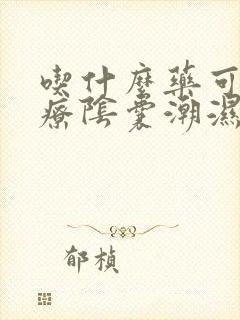 喫什麼藥可
療陰囊潮濕
郁楨